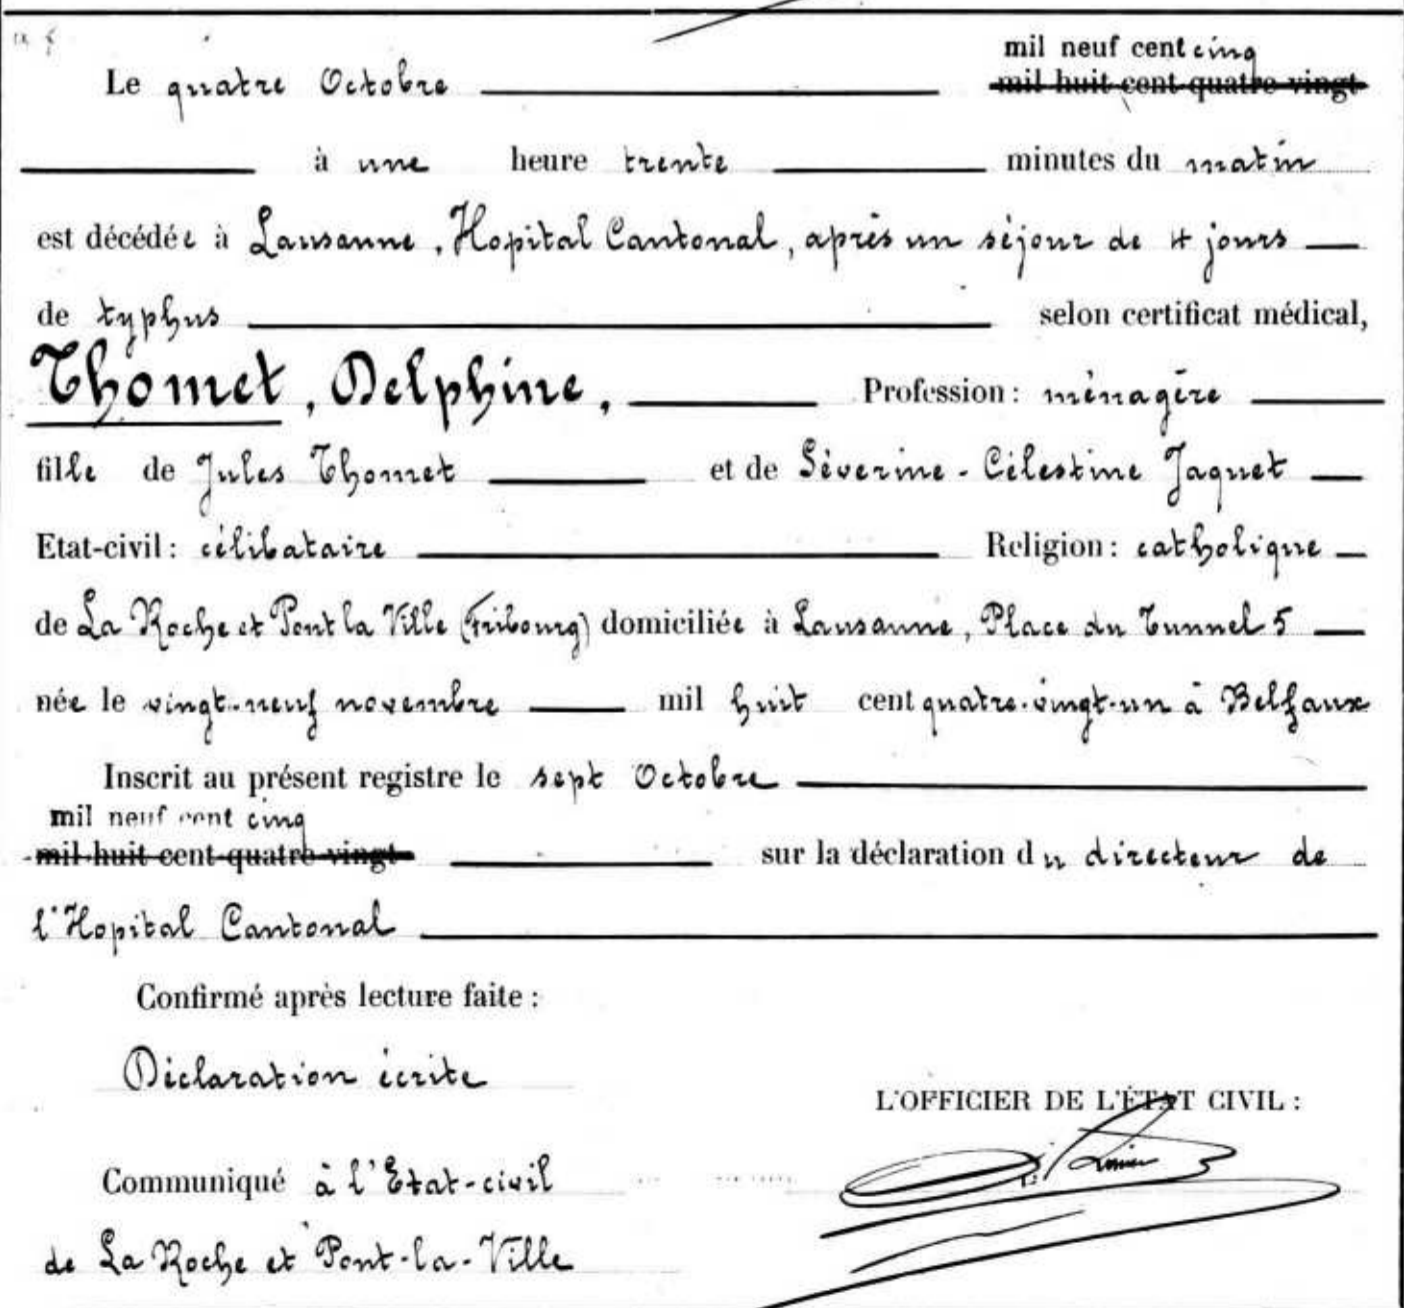 mil neuf cent cinq
Le quatre Octobre mil huit cent quatre-vingt
à une heure trente minutes du matin
est décédée à Lausanne, Hopital Cantonal, après un séjour de 4 jours
de typhus selon certificat médical,
Thomet, Delphine, Profession: ménagère
fille de Jules Thomet et de Séverine-Célestine Jaquet
Etat-civil: célibataire Religion: catholique
de La Roche et Pont la Ville (Fribourg) domiciliée à Lausanne, Place du Tunnel 5
née le vingt-neuf novembre mil huit cent quatre-vingt-un à Belfaux
Inscrit au présent registre le sept Octobre
mil neuf cent cinq
mil huit cent quatre-vingt sur la déclaration du directeur de
l'Hopital Cantonal
Confirmé après lecture faite:
Déclaration écrite
L'OFFICIER DE L'ÉTAT CIVIL:
Communiqué à l'Etat-civil
de La Roche et Pont-la-Ville